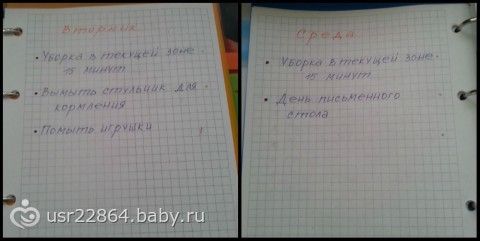 Вторник
• Уборка в текущей зоне -
15 минут
• Вымыть стульчик для
кормления
• Помыть игрушки
Среда
• Уборка в текущей зоне -
15 минут
• День письменного
стола
usr22864.baby.ru